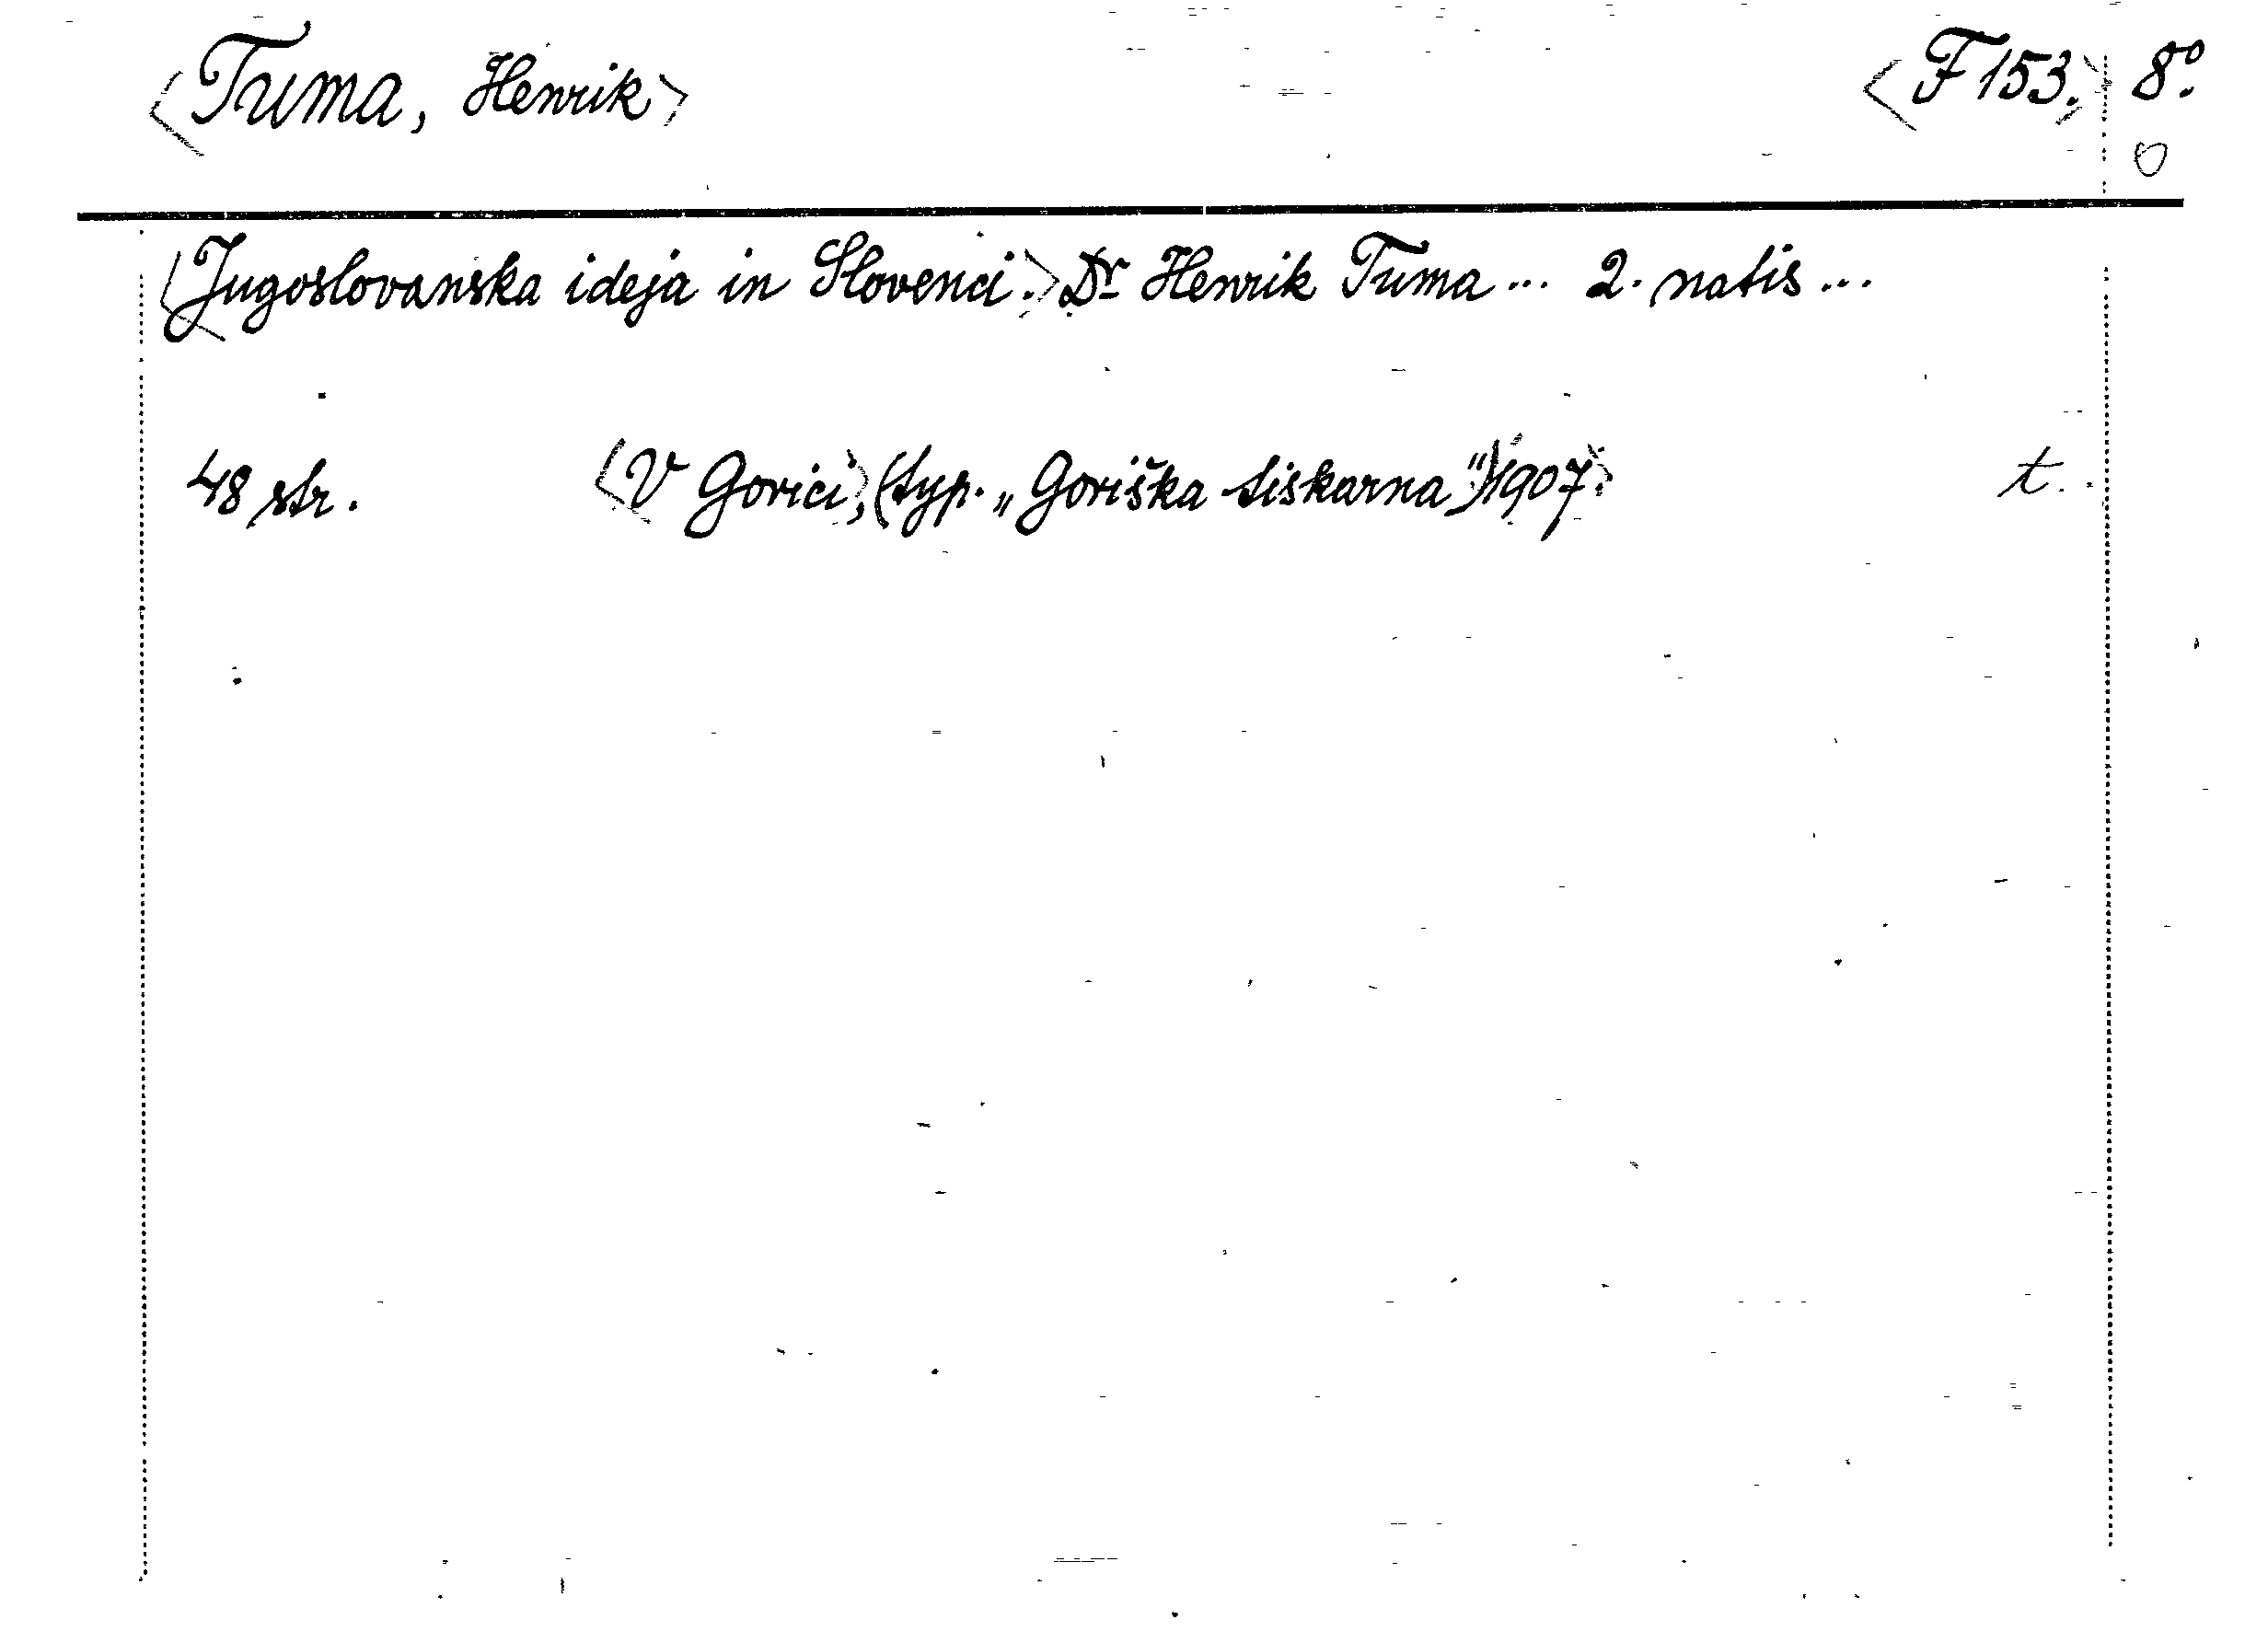 <Tuma, Henrik> <F 153.> 8º.
O
<Jugoslovanska ideja in Slovenci.> Dr Henrik Tuma ... 2. natis ...
48 str. <V Gorici,> (typ. „Goriška tiskarna") <1907.> t.